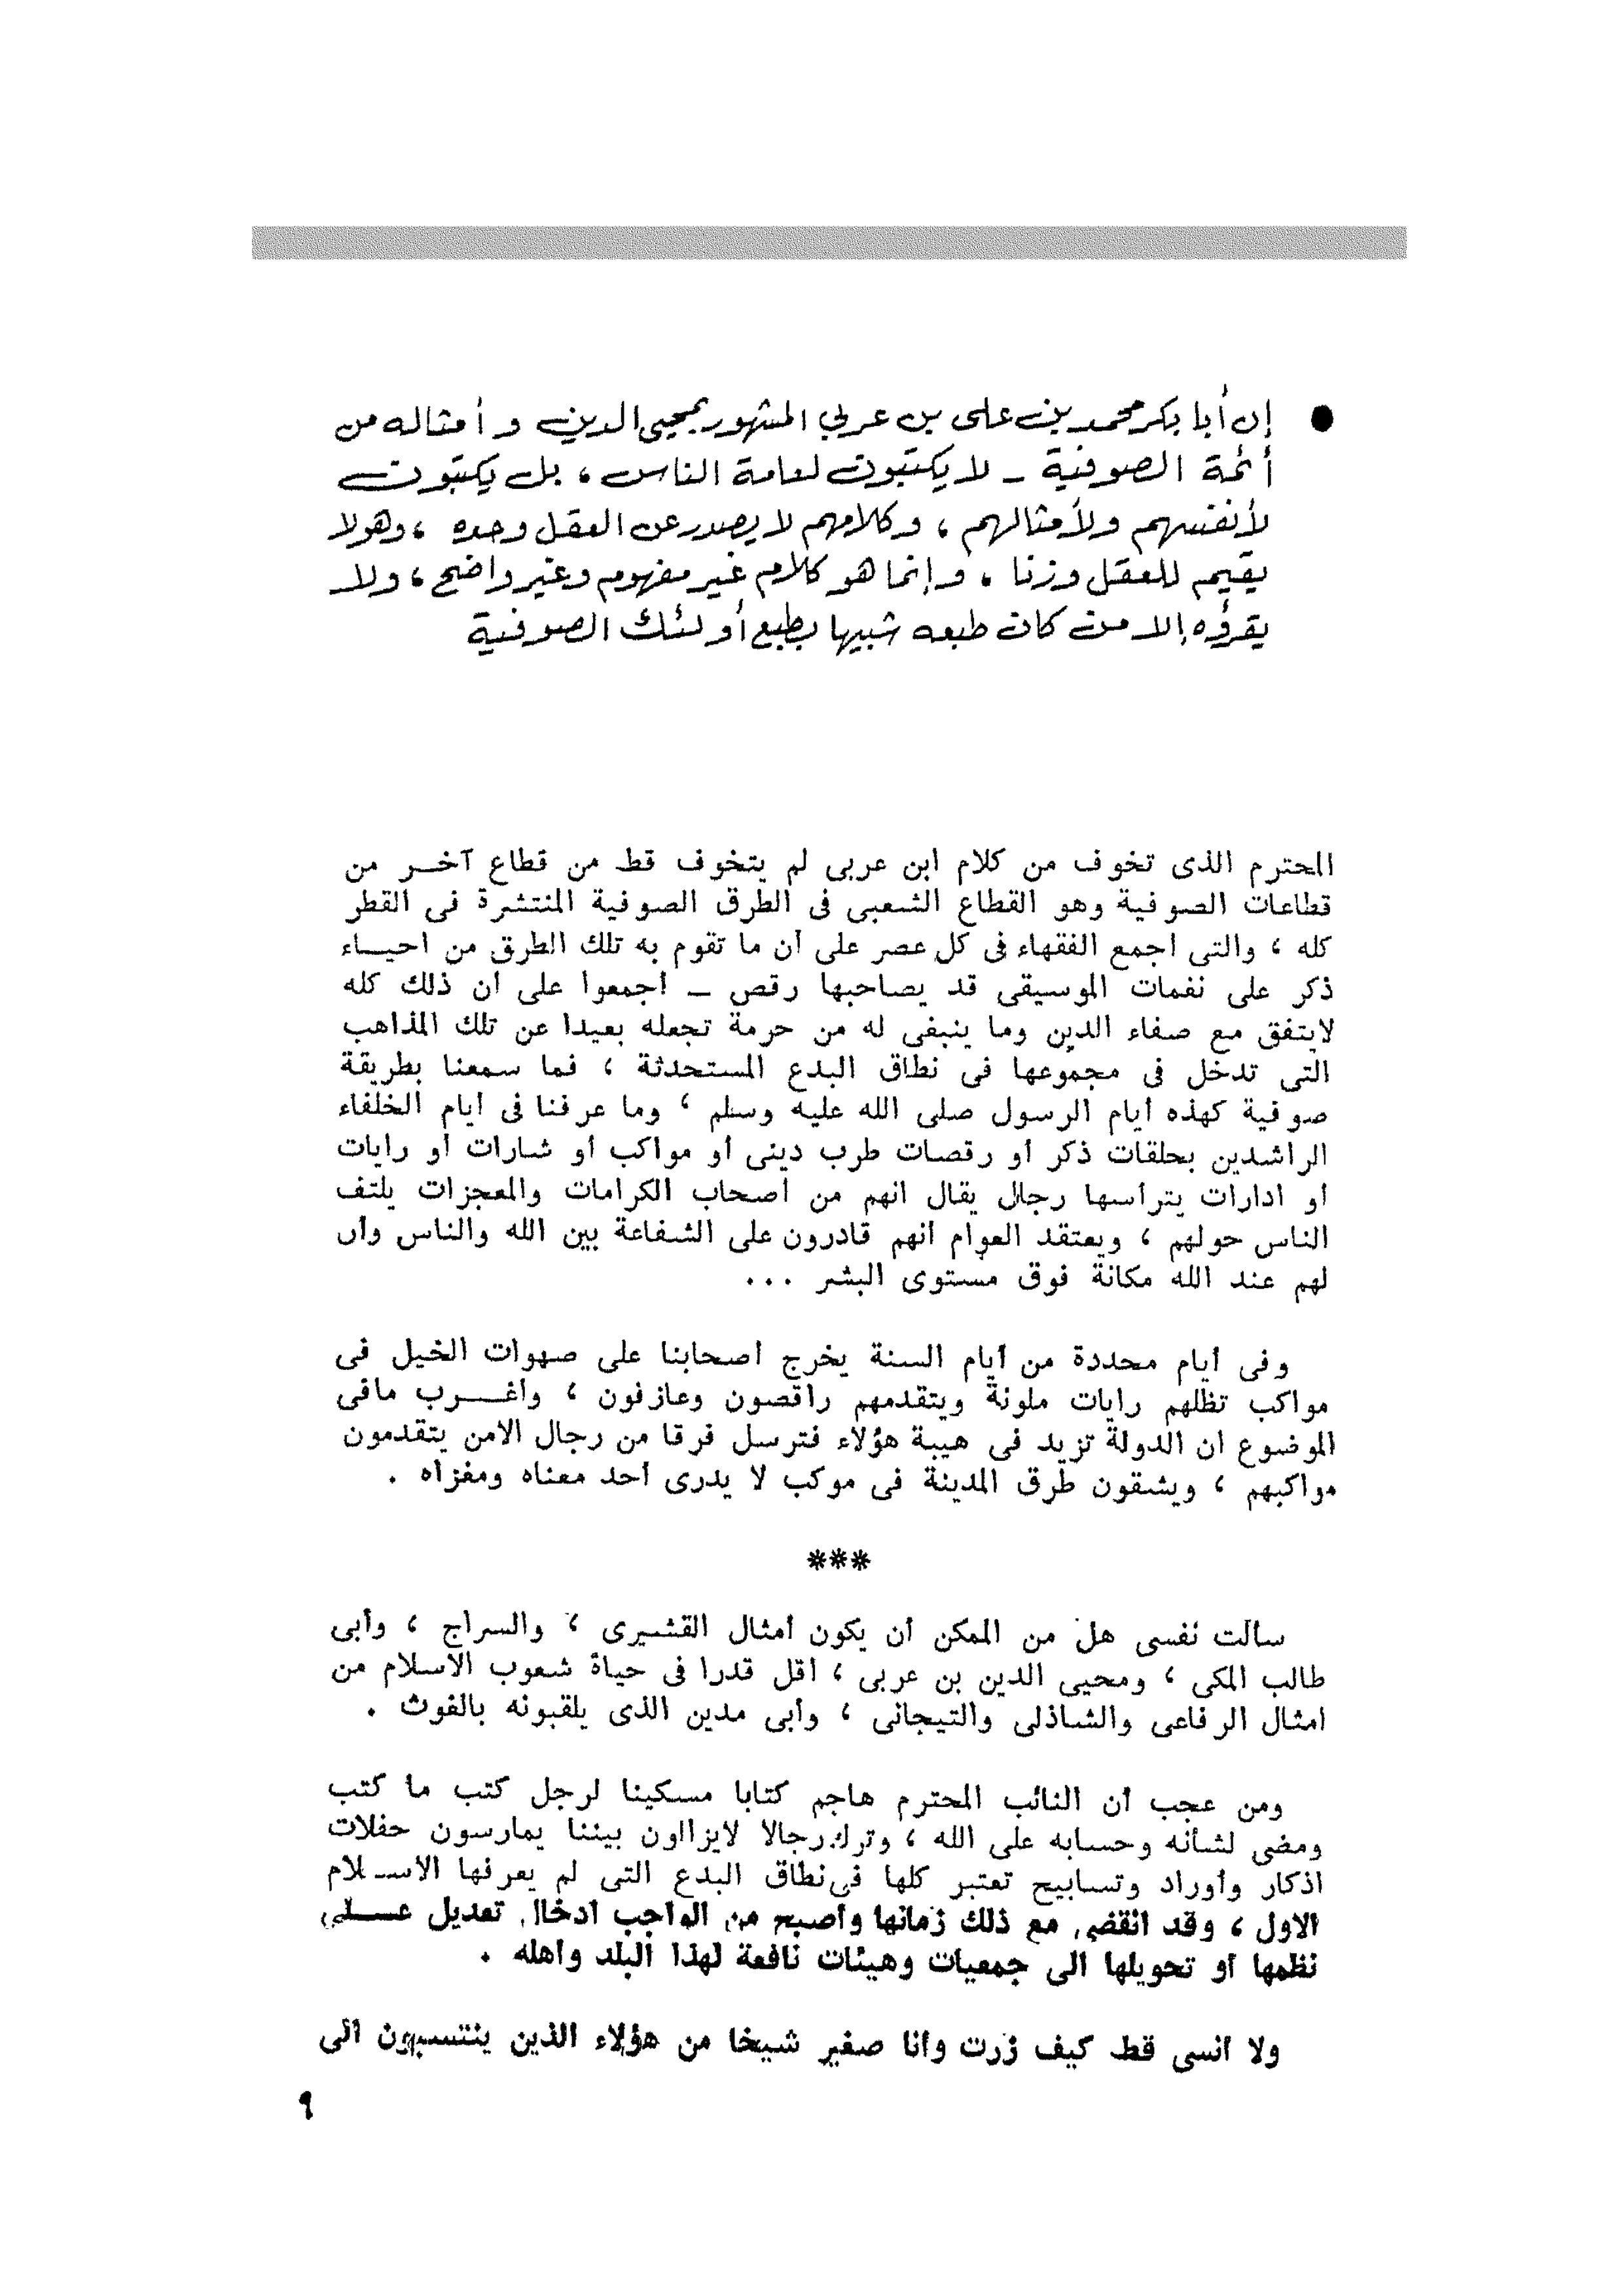 ● إن أبا بكر محمد بن على بن عربي المشهور بمحيى الدين وأمثاله من
أئمة الصوفية – لا يكتبون لعامة الناس ، بل يكتبون
لأنفسهم ولأمثالهم ، وكلامهم لا يصدر عن العقل وحده ، وهو لا
يقيم للعقل وزنا ، وإنما هو كلام غير مفهوم وغير واضح ، ولا
يقرؤه إلا من كان طبعه شبيها بطبع أولئك الصوفية
المحترم الذى تخوف من كلام ابن عربى لم يتخوف قط من قطاع آخــر من
قطاعات الصوفية وهو القطاع الشعبى فى الطرق الصوفية المنتشرة فى القطر
كله ، والتى أجمع الفقهاء فى كل عصر على أن ما تقوم به تلك الطرق من احيــاء
ذكر على نغمات الموسيقى قد يصاحبها رقص – أجمعوا على أن ذلك كله
لايتفق مع صفاء الدين وما ينبغى له من حرمة تجعله بعيدا عن تلك المذاهب
التى تدخل فى مجموعها فى نطاق البدع المستحدثة ، فما سمعنا بطريقة
صوفية كهذه أيام الرسول صلى الله عليه وسلم ، وما عرفنا فى أيام الخلفاء
الراشدين بحلقات ذكر أو رقصات طرب دينى أو مواكب أو شارات أو رايات
أو ادارات يترأسها رجال يقال انهم من أصحاب الكرامات والمعجزات يلتف
الناس حولهم ، ويعتقد العوام أنهم قادرون على الشفاعة بين الله والناس وأن
لهم عند الله مكانة فوق مستوى البشر ...
وفى أيام محددة من أيام السنة يخرج أصحابنا على صهوات الخيل فى
مواكب تظلهم رايات ملونة ويتقدمهم راقصون وعازفون ، وأغــرب مافى
الموضوع أن الدولة تزيد فى هيبة هؤلاء فترسل فرقا من رجال الأمن يتقدمون
مواكبهم ، ويشقون طرق المدينة فى موكب لا يدرى أحد معناه ومغزاه .
***
سألت نفسى هل من الممكن أن يكون أمثال القشيرى ، والسراج ، وأبى
طالب المكى ، ومحيى الدين بن عربى ، أقل قدرا فى حياة شعوب الاسلام من
أمثال الرفاعى والشاذلى والتيجانى ، وأبى مدين الذى يلقبونه بالغوث .
ومن عجب أن النائب المحترم هاجم كتابا مسكينا لرجل كتب ما كتب
ومضى لشأنه وحسابه على الله ، وترك رجالا لايزالون بيننا يمارسون حفلات
اذكار وأوراد وتسابيح تعتبر كلها فى نطاق البدع التى لم يعرفها الاســلام
الاول ، وقد انقضى مع ذلك زمانها وأصبح من الواجب ادخال تعديل عــلى
نظمها أو تحويلها الى جمعيات وهيئات نافعة لهذا البلد وأهله .
ولا أنسى قط كيف زرت وأنا صغير شيخا من هؤلاء الذين ينتسبون الى
٩